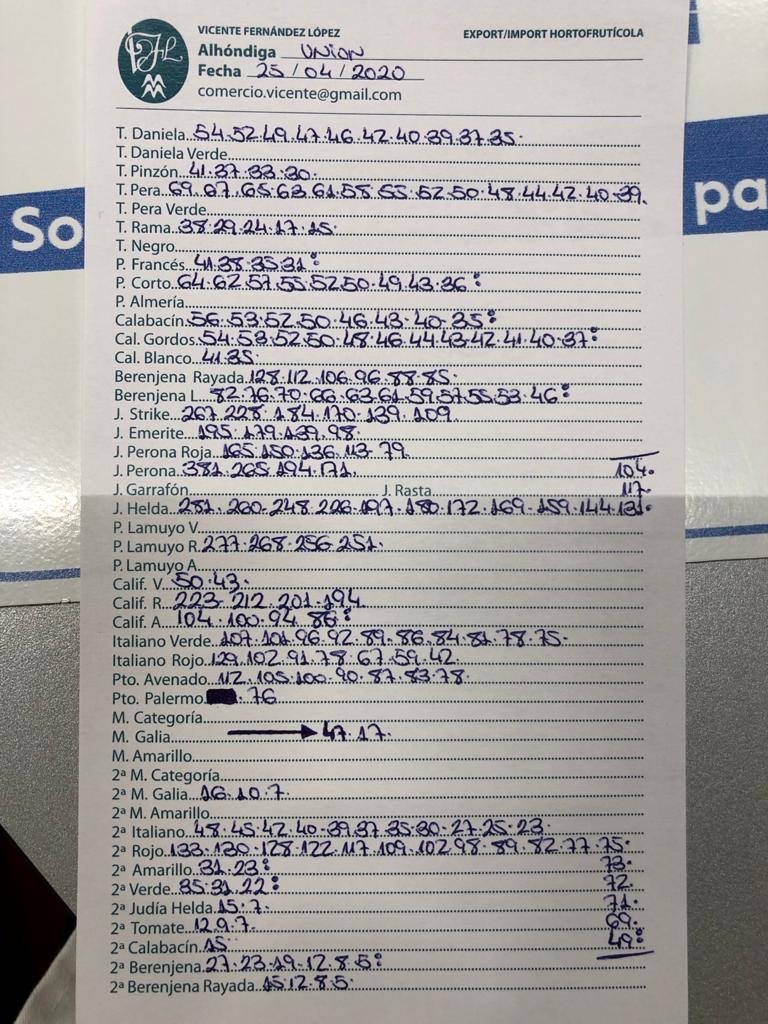 VICENTE FERNÁNDEZ LÓPEZ EXPORT/IMPORT HORTOFRUTÍCOLA
Alhóndiga UNION
Fecha 25/04/2020
comercio.vicente@gmail.com
T. Daniela 54.52.49.47.46.42.40.39.37.35.
T. Daniela Verde
T. Pinzón 41.37.33.30.
T. Pera 69.67.65.63.61.58.55.52.50.48.44.42.40.39.
T. Pera Verde
T. Rama 38.29.24.17.15.
T. Negro
P. Francés 41.38.35.31:
P. Corto 64.62.57.55.52.50.49.43.36:
P. Almería
Calabacín 56.53.52.50.46.43.40.35:
Cal. Gordos 54.53.52.50.48.46.44.43.42.41.40.37:
Cal. Blanco 41.35.
Berenjena Rayada 128.112.106.96.88.85.
Berenjena L. 82.76.70.66.63.61.59.57.55.53.46:
J. Strike 267.228.184.170.139.109
J. Emerite 195.179.139.98.
J. Perona Roja 165.150.136.113.79
J. Perona 381.265.194.171. 104.
J. Garrafón J. Rasta 117.
J. Helda 281.260.248.226.197.180.172.169.159.144.131.
P. Lamuyo V.
P. Lamuyo R. 277.268.256.251.
P. Lamuyo A.
Calif. V. 50.43.
Calif. R. 223.212.201.194
Calif. A. 104.100.94.86:
Italiano Verde 107.101.96.92.89.86.84.81.78.75.
Italiano Rojo 129.102.91.78.67.59.42.
Pto. Avenado 112.105.100.90.87.83.78.
Pto. Palermo 76
M. Categoría
M. Galia 47.17.
M. Amarillo
2ª M. Categoría
2ª M. Galia 16.10.7.
2ª M. Amarillo
2ª Italiano 48.45.42.40.39.37.35.30.27.25.23.
2ª Rojo 133.130.128.122.117.109.102.98.89.82.77.75.
2ª Amarillo 31.23: 73.
2ª Verde 35.31.22: 72.
2ª Judía Helda 15.7. 71.
2ª Tomate 12.9.7. 69.
2ª Calabacín 15. 49:
2ª Berenjena 27.23.19.12.8.5:
2ª Berenjena Rayada 15.12.8.5.
So
pa